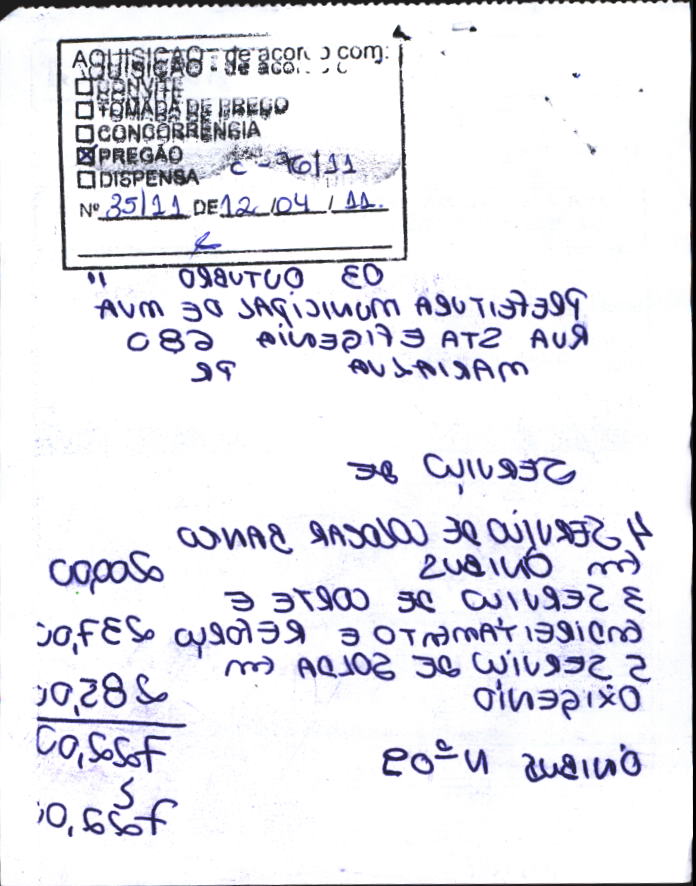 AQUISIÇAO - de acordo com:
AQUISIÇAO - de aco
CONVITE
TOMADA DE PREÇO
CONCORRÊNCIA
X PREGÃO
C - 36/11
DISPENSA
Nº 35/11 DE 12 /04 / 11.
03 OUTUBRO 11
PREFEITURA MUNICIPAL DE MVA
RUA STA EFIGENIA 680
MARIALVA PR
SERVIÇO DE
4 SERVIÇO DE COLOCAR BANCO
em ÔNIBUS 200,00
3 SERVIÇO DE CORTE E
ENDIREITAMENTO E REFORÇO 237,00
5 SERVIÇO DE SOLDA em
OXIGENIO 285,00
722,00
ÔNIBUS Nº 09
722,00